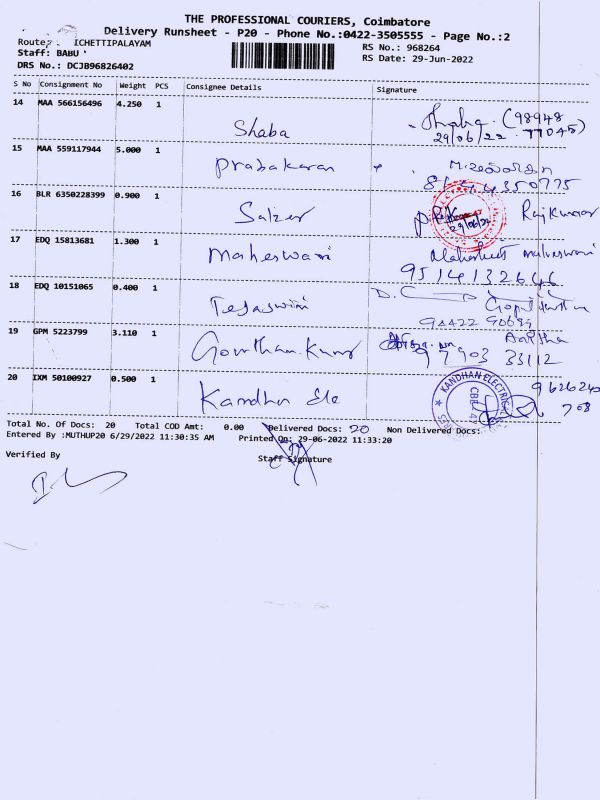 THE PROFESSIONAL COURIERS, Coimbatore
Delivery Runsheet - P20 - Phone No.:0422-3505555 - Page No.:2
Route: ICHETTIPALAYAM
RS No.: 968264
Staff: BABU '
RS Date: 29-Jun-2022
DRS No.: DCJB96826402
S No Consignment No Weight PCS Consignee Details Signature
14 MAA 566156496 4.250 1 Shaba (98948
29/06/22 77045)
15 MAA 559117944 5.000 1 Prabakaran
16 BLR 6350228399 0.900 1 Salzer Rajkumar
29/06/22
17 EDQ 15813681 1.300 1 Maheswari
9514132646
18 EDQ 10151065 0.400 1 Tejaswini D.C
94422 90699
19 GPM 5223799 3.110 1 Gowtham Kumar
97903 33112
20 IXM 50100927 0.500 1 Kandhan Ele KANDHAN ELECTRICAL 9626240
708
Total No. Of Docs: 20 Total COD Amt: 0.00 Delivered Docs: 20 Non Delivered Docs:
Entered By :MUTHUP20 6/29/2022 11:30:35 AM Printed On: 29-06-2022 11:33:20
Verified By Staff Signature